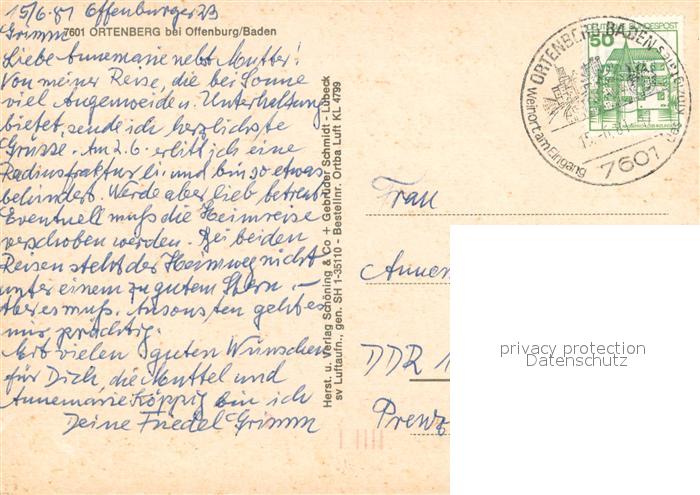 15/6.81 Offenburger 23
Grimm
7601 ORTENBERG bei Offenburg/Baden
Liebe Annemarie nebst Mutter!
Von meiner Reise, die bei Sonne
viel Augenweiden u. Unterhaltung
bietet, sende ich herzlichste
Grüsse. Am 2.6. erlitt ich eine
Radiusfraktur li. und bin so etwas
behindert. Werde aber lieb betreut.
Eventuell muß die Heimreise
verschoben werden. Bei beiden
Reisen steht der Heimweg nicht
unter einem zu gutem Stern. —
Aber es muß. Ansonsten geht es
mir prächtig.
Mit vielen guten Wünschen
für Dich, die Muttel und
Annemarie Köppig bin ich
Deine Friedel Grimm
Herst. u. Verlag Schöning & Co + Gebrüder Schmidt - Lübeck
sv Luftaufn., gen. SH 1-35110 - Bestellnr. Ortba Luft KL 4799
ORTENBERG, BADEN
Weinort am Eingang des Kinzigtales
7601
DEUTSCHE BUNDESPOST
50
Frau
Annem
DDR 1
Prenz
privacy protection
Datenschutz